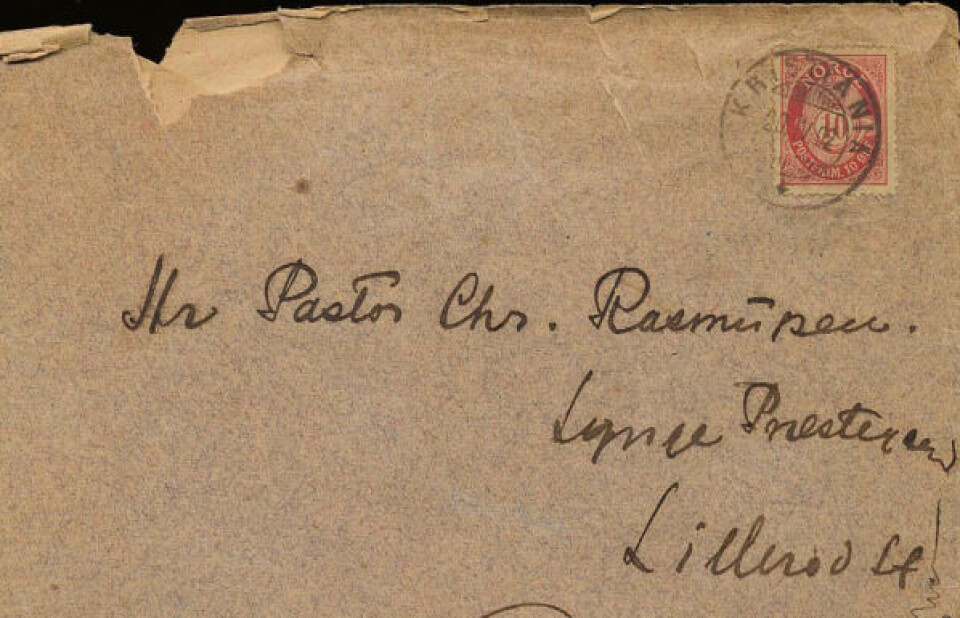 KRISTIANIA
NORGE
10
POSTFRIM. 10 ØRE
Hr Pastor Chr. Rasmußen.
Lynge Præstegaard
Lillerød St.